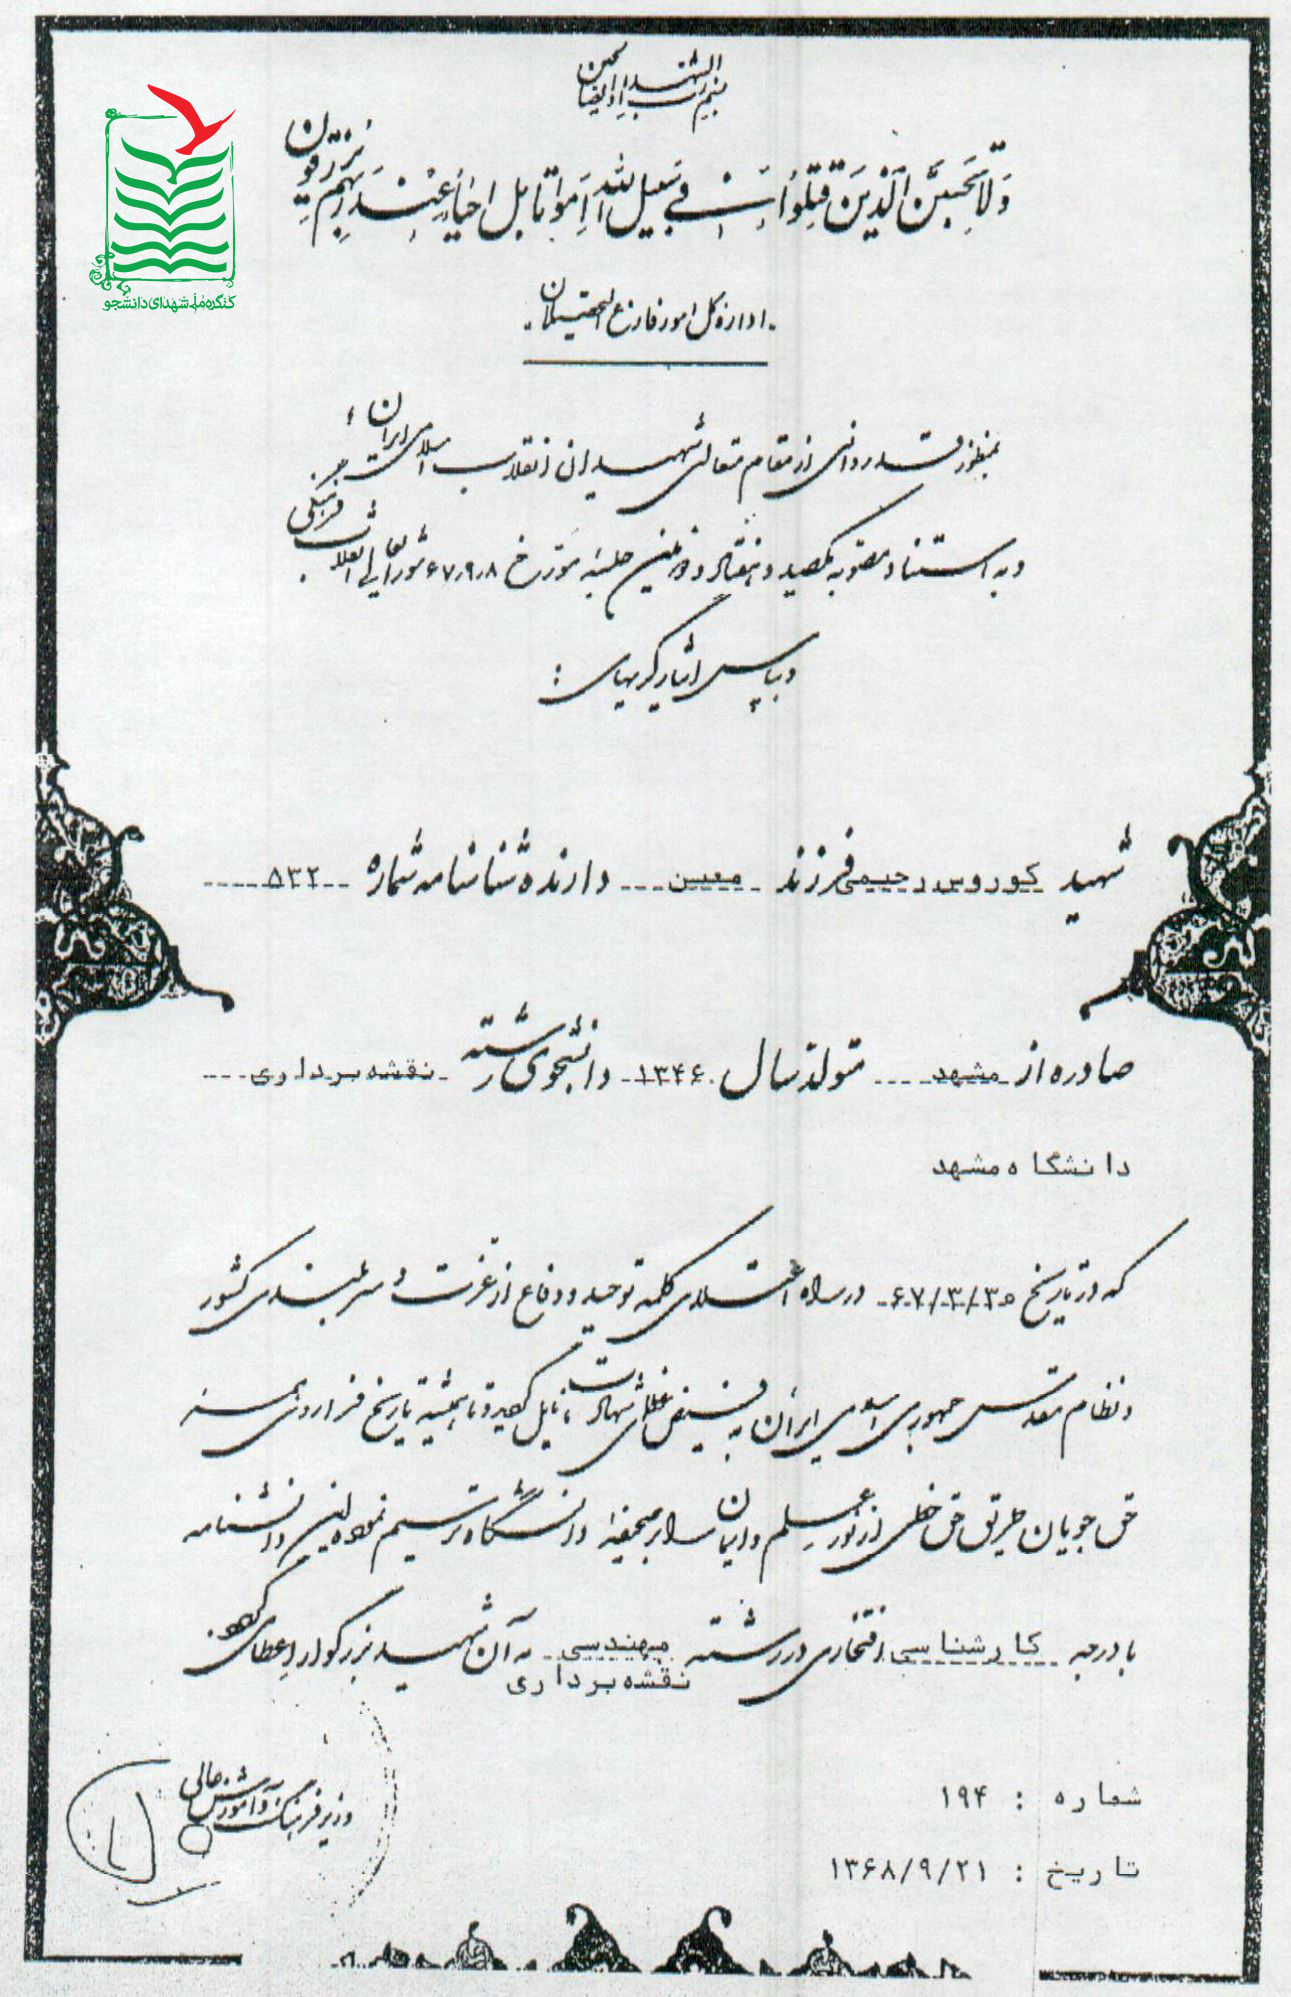 بسم رب الشهداء و الصالحین
وَلا تَحْسَبَنَّ الَّذینَ قُتِلُوا فی سَبیلِ الله اَمْواتا بل احیاءٌ عِنْدَ رَبِّهِم یُرْزَقُون
کنگره ملی شهدای دانشجو
اداره کل امور فارغ التحصیلان
بمنظور قدردانی از مقام متعالی شهیدان انقلاب اسلامی ایران؛
و به استناد مصوبه یکصد و هفتاد و دومین جلسه مورخ ۶۷٫۹٫۸ شورایعالی انقلاب فرهنگی
و بپاس ایثارگریهای :
شهید کوروس رحیمی فرزند معین دارنده شناسنامه شماره ۵۳۲
صادره از مشهد متولد سال ۱۳۴۶ دانشجوی رشته نقشه برداری
دانشگاه مشهد
که در تاریخ ۶۷/۳/۳۰ در راه اعتلای کلمه توحید و دفاع از عزت و سربلندی کشور
و نظام مقدس جمهوری اسلامی ایران به فیض عظمای شهادت نایل گردید و تا همیشه تاریخ فراروی همه
حق جویان طریق حق خطی از نور علم و ایمان را بر صحیفه دانشگاه ترسیم نموده این دانشنامه
با درجه کارشناسی افتخاری در رشته مهندسی به آن شهید بزرگوار اعطا می گردد.
نقشه برداری
وزیر فرهنگ و آموزش عالی
شماره : ۱۹۴
تاریخ : ۱۳۶۸/۹/۲۱